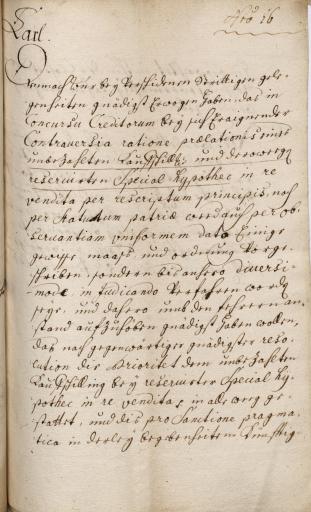 No 16
Carl.
Demnach wir bey verschidenen Strittigen gele-
genheiten gnädigst Erwogen haben, das in
Concursu Creditorum bey sich Eraignender
Controversia ratione prælationis eines
unbezahlten Kauffschilling, und derowegen
reservirten Special Hypothec in re
vendita per rescriptum principis, noch
per Statutum patriæ weder auch per ob-
servantiam uniformem dato Einige
gewisse maass und ordnung vorge-
schriben, sondern bis anhero diversi-
mode in Judicando verfahren worden
seye, und dahero umb den fehrern an-
stand aufzuheben gnädigst haben wollen,
das nach gegenwärtiger gnädigster reso-
lution die Prioritet dem unbezahlten
Kauffschilling bey reservirter Special Hy-
pothec in re vendita, in all weeg ge-
stattet, und dis pro Sanctione pragma-
tica in derley begebenheiten künfftig